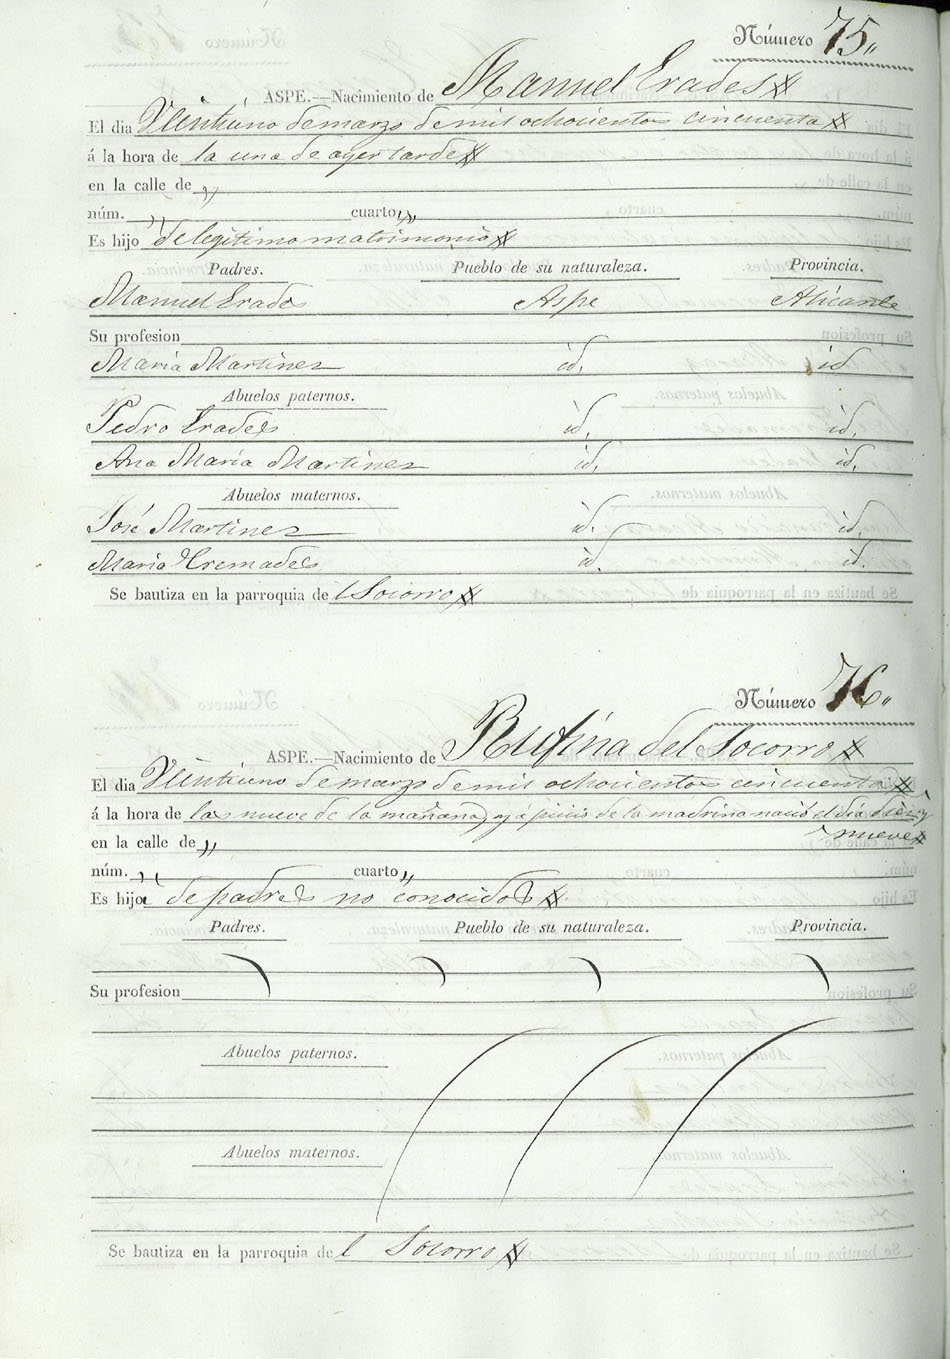 Número 75„
ASPE.—Nacimiento de Manuel Erades
El dia Veintiuno de marzo de mil ochocientos cincuenta
á la hora de la una de ayer tarde
en la calle de „
núm. „ cuarto „
Es hijo de legitimo matrimonio
Padres. Pueblo de su naturaleza. Provincia.
Manuel Erades Aspe Alicante
Su profesion
Maria Martinez id. id
Abuelos paternos.
Pedro Erades id. id.
Ana Maria Martinez id. id.
Abuelos maternos.
José Martinez id. id.
Maria Cremades id. id.
Se bautiza en la parroquia del Socorro
Número 76„
ASPE.—Nacimiento de Rufina del Socorro
El dia Veintiuno de marzo de mil ochocientos cincuenta
á la hora de las nueve de la mañana, y á juicio de la madrina nació el dia diez y
nueve
en la calle de „
núm. „ cuarto „
Es hija de padres no conocidos
Padres. Pueblo de su naturaleza. Provincia.
Su profesion
Abuelos paternos.
Abuelos maternos.
Se bautiza en la parroquia del Socorro